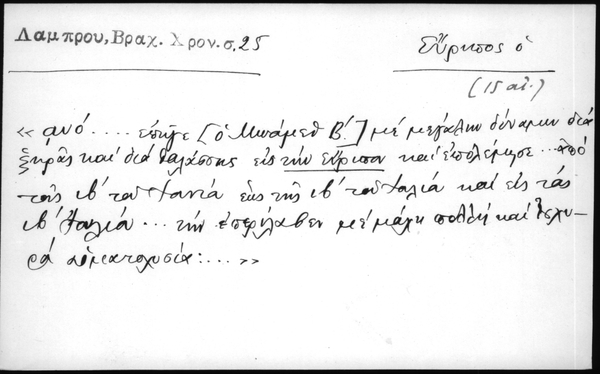 Λαμπρου, Βραχ. Χρον. σ. 25
Εὔριπος ὁ
(15 αἰ.)
« αυό .... ἐπῆγε [ὁ Μωάμεθ Β΄.] μέ μεγάλην δύναμιν διά
ξηρᾶς καί διά θαλάσσης εἰς τήν εὔριπον καί ἐπολέμησε ... ἀπό
τοῖς ιβ΄ τοῦ ἕως τῆς ιβ΄ τοῦ καί εἰς τάς
ιβ΄ ... τήν ἐπερίλαβεν μέ μάχη πολλή καί ἰσχυ-
ρά αἱματοχυσία: ... »